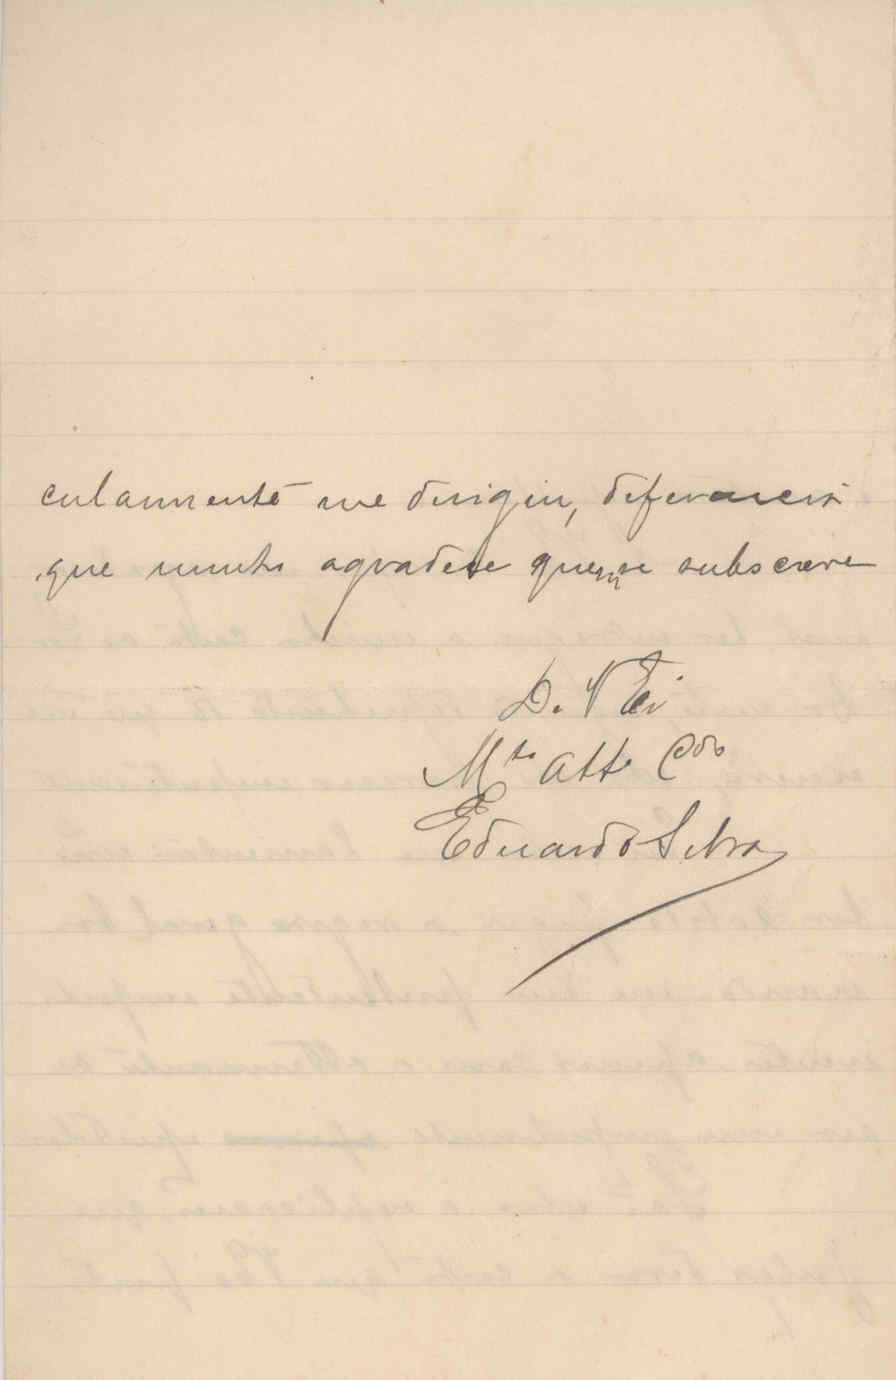 culamente me dirigiu, diferencia
que muito agradece quem se subscreve
De V Ex
Mto Atto Cdo
Eduardo Silva